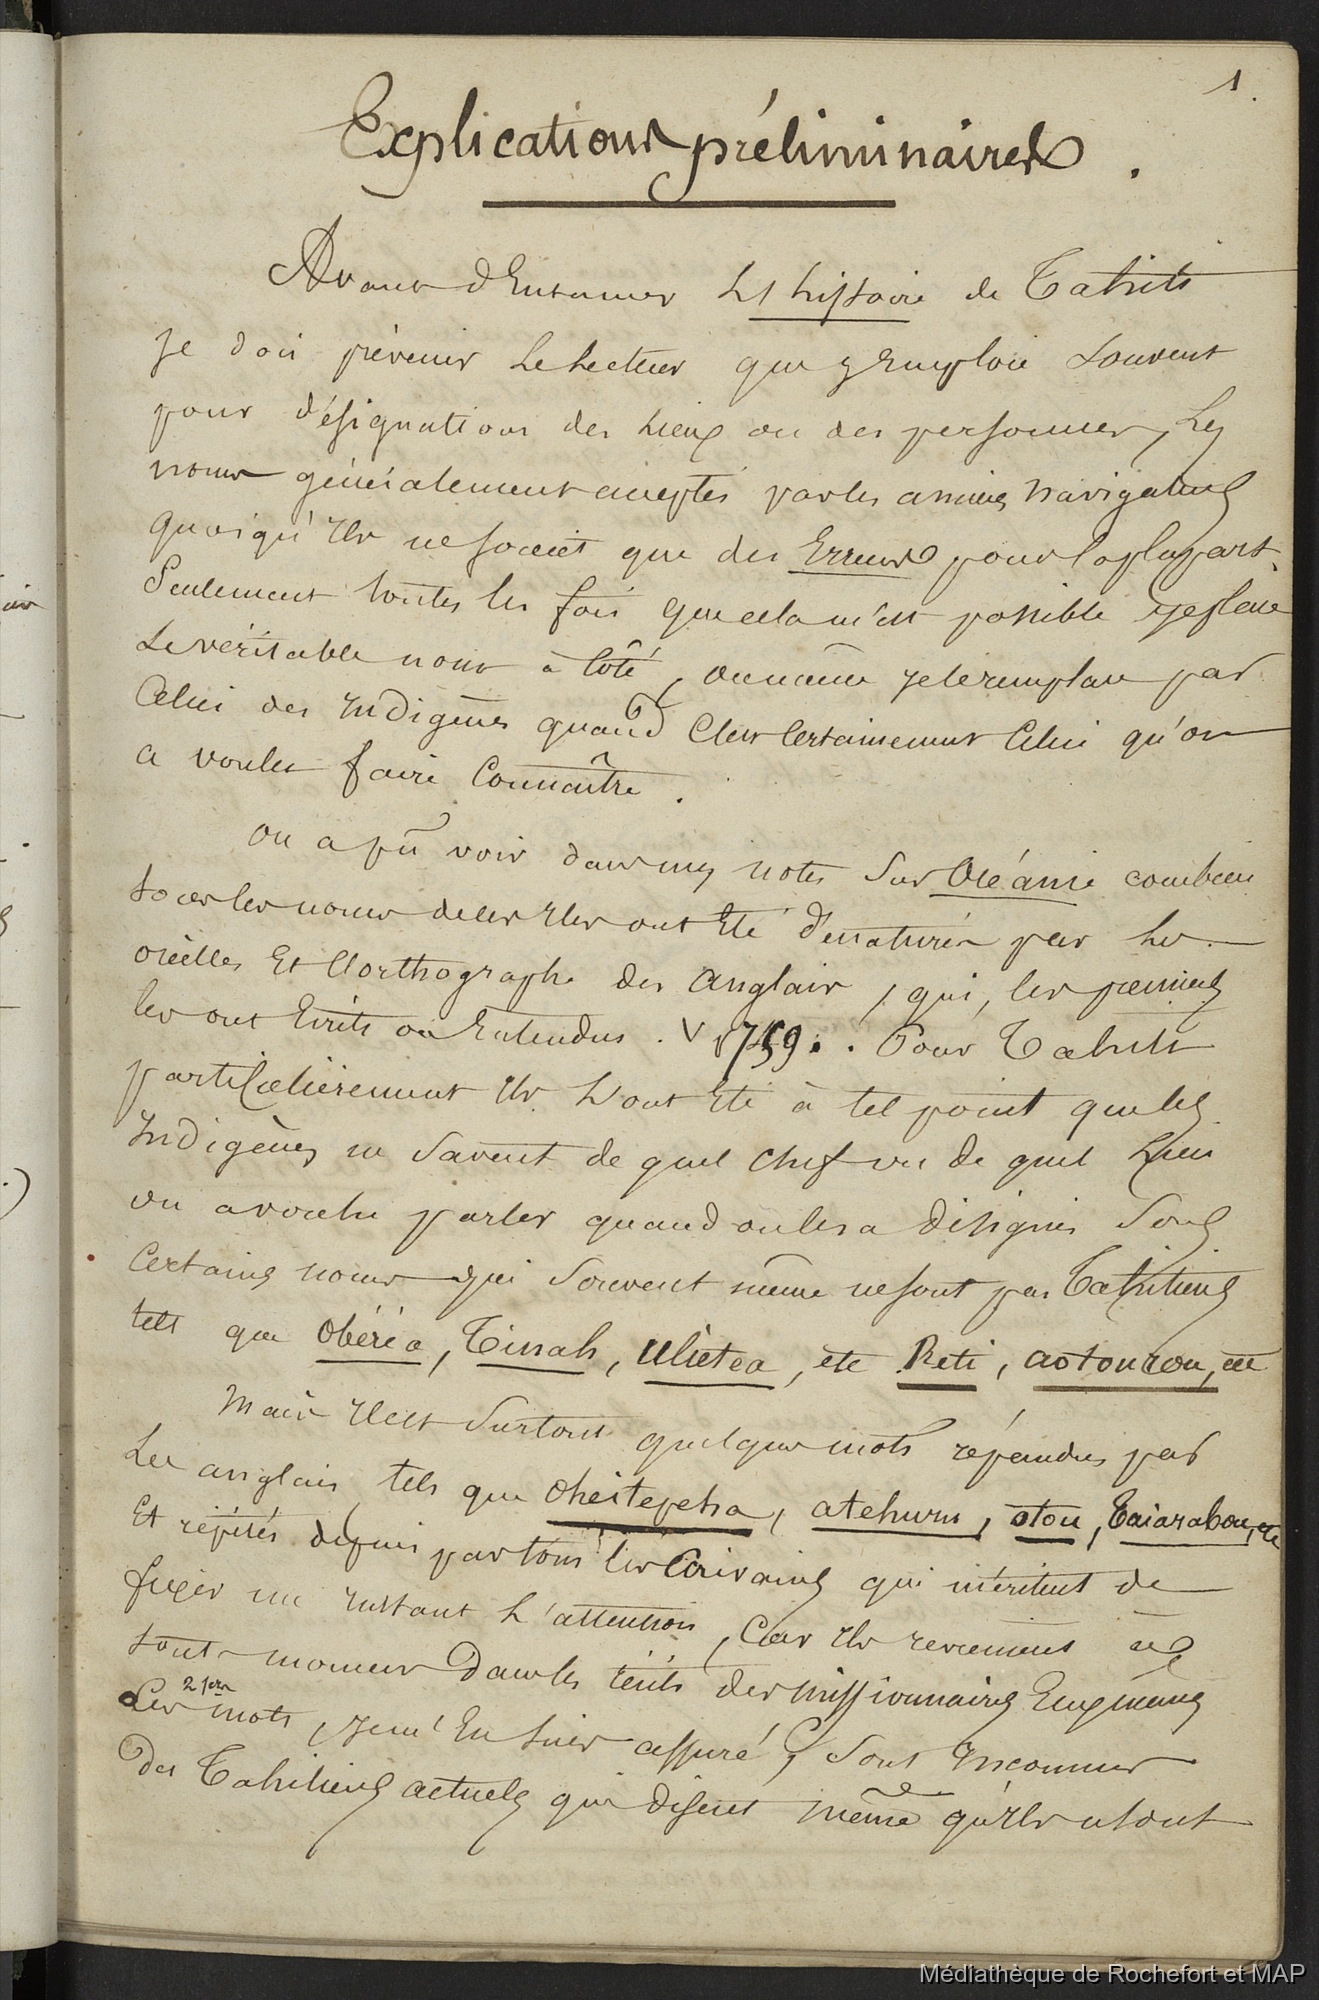 1.
Explications préliminaires.
Avant d'Entamer L'histoire de Tahiti
je dois prévenir Le Lecteur que j'Emploie Souvent
pour désignations des Lieux ou des personnes, Les
noms généralement acceptés par les anciens navigateurs
quoiqu'Ils ne soient que des Erreurs pour la plupart.
Seulement toutes les fois que cela m'est possible je place
Le véritable nom à Côté, ou même je le remplace par
Celui des Indigènes quand C'est Certainement Celui qu'on
a voulu faire Connaître.
On a pû voir dans mes notes Sur Océanie combien
tous les noms de ces Iles ont Eté dénaturés par les
oreilles Et L'orthographe des anglais, qui, les premiers
les ont Ecrits ou Entendus. V 1759. Pour Tahiti
particulièrement Ils L'ont Eté à tel point que les
Indigènes ne Savent de quel chef ou de quel Lieu
on a voulu parler quand on les a désignés Sous
Certains noms qui Souvent même ne sont pas Tahitiens
tels que Obéréa, Tinah, Ulietea, etc Reti, aotourou, etc
Mais Il est Surtout quelques mots répandus par
Les anglais, tels que Oheitepeha, atehuru, otou, Taiarabou, etc
Et répétés depuis par tous les Ecrivains qui méritent de
fixer un Instant L'attention, Car Ils reviennent à
tout moment Dans les récits des missionnaires Eux mêmes
Les 2 pers mots, je m'En suis assuré, Sont Inconnus
Des Tahitiens actuels qui disent même qu'Ils n'ont
Médiathèque de Rochefort et MAP